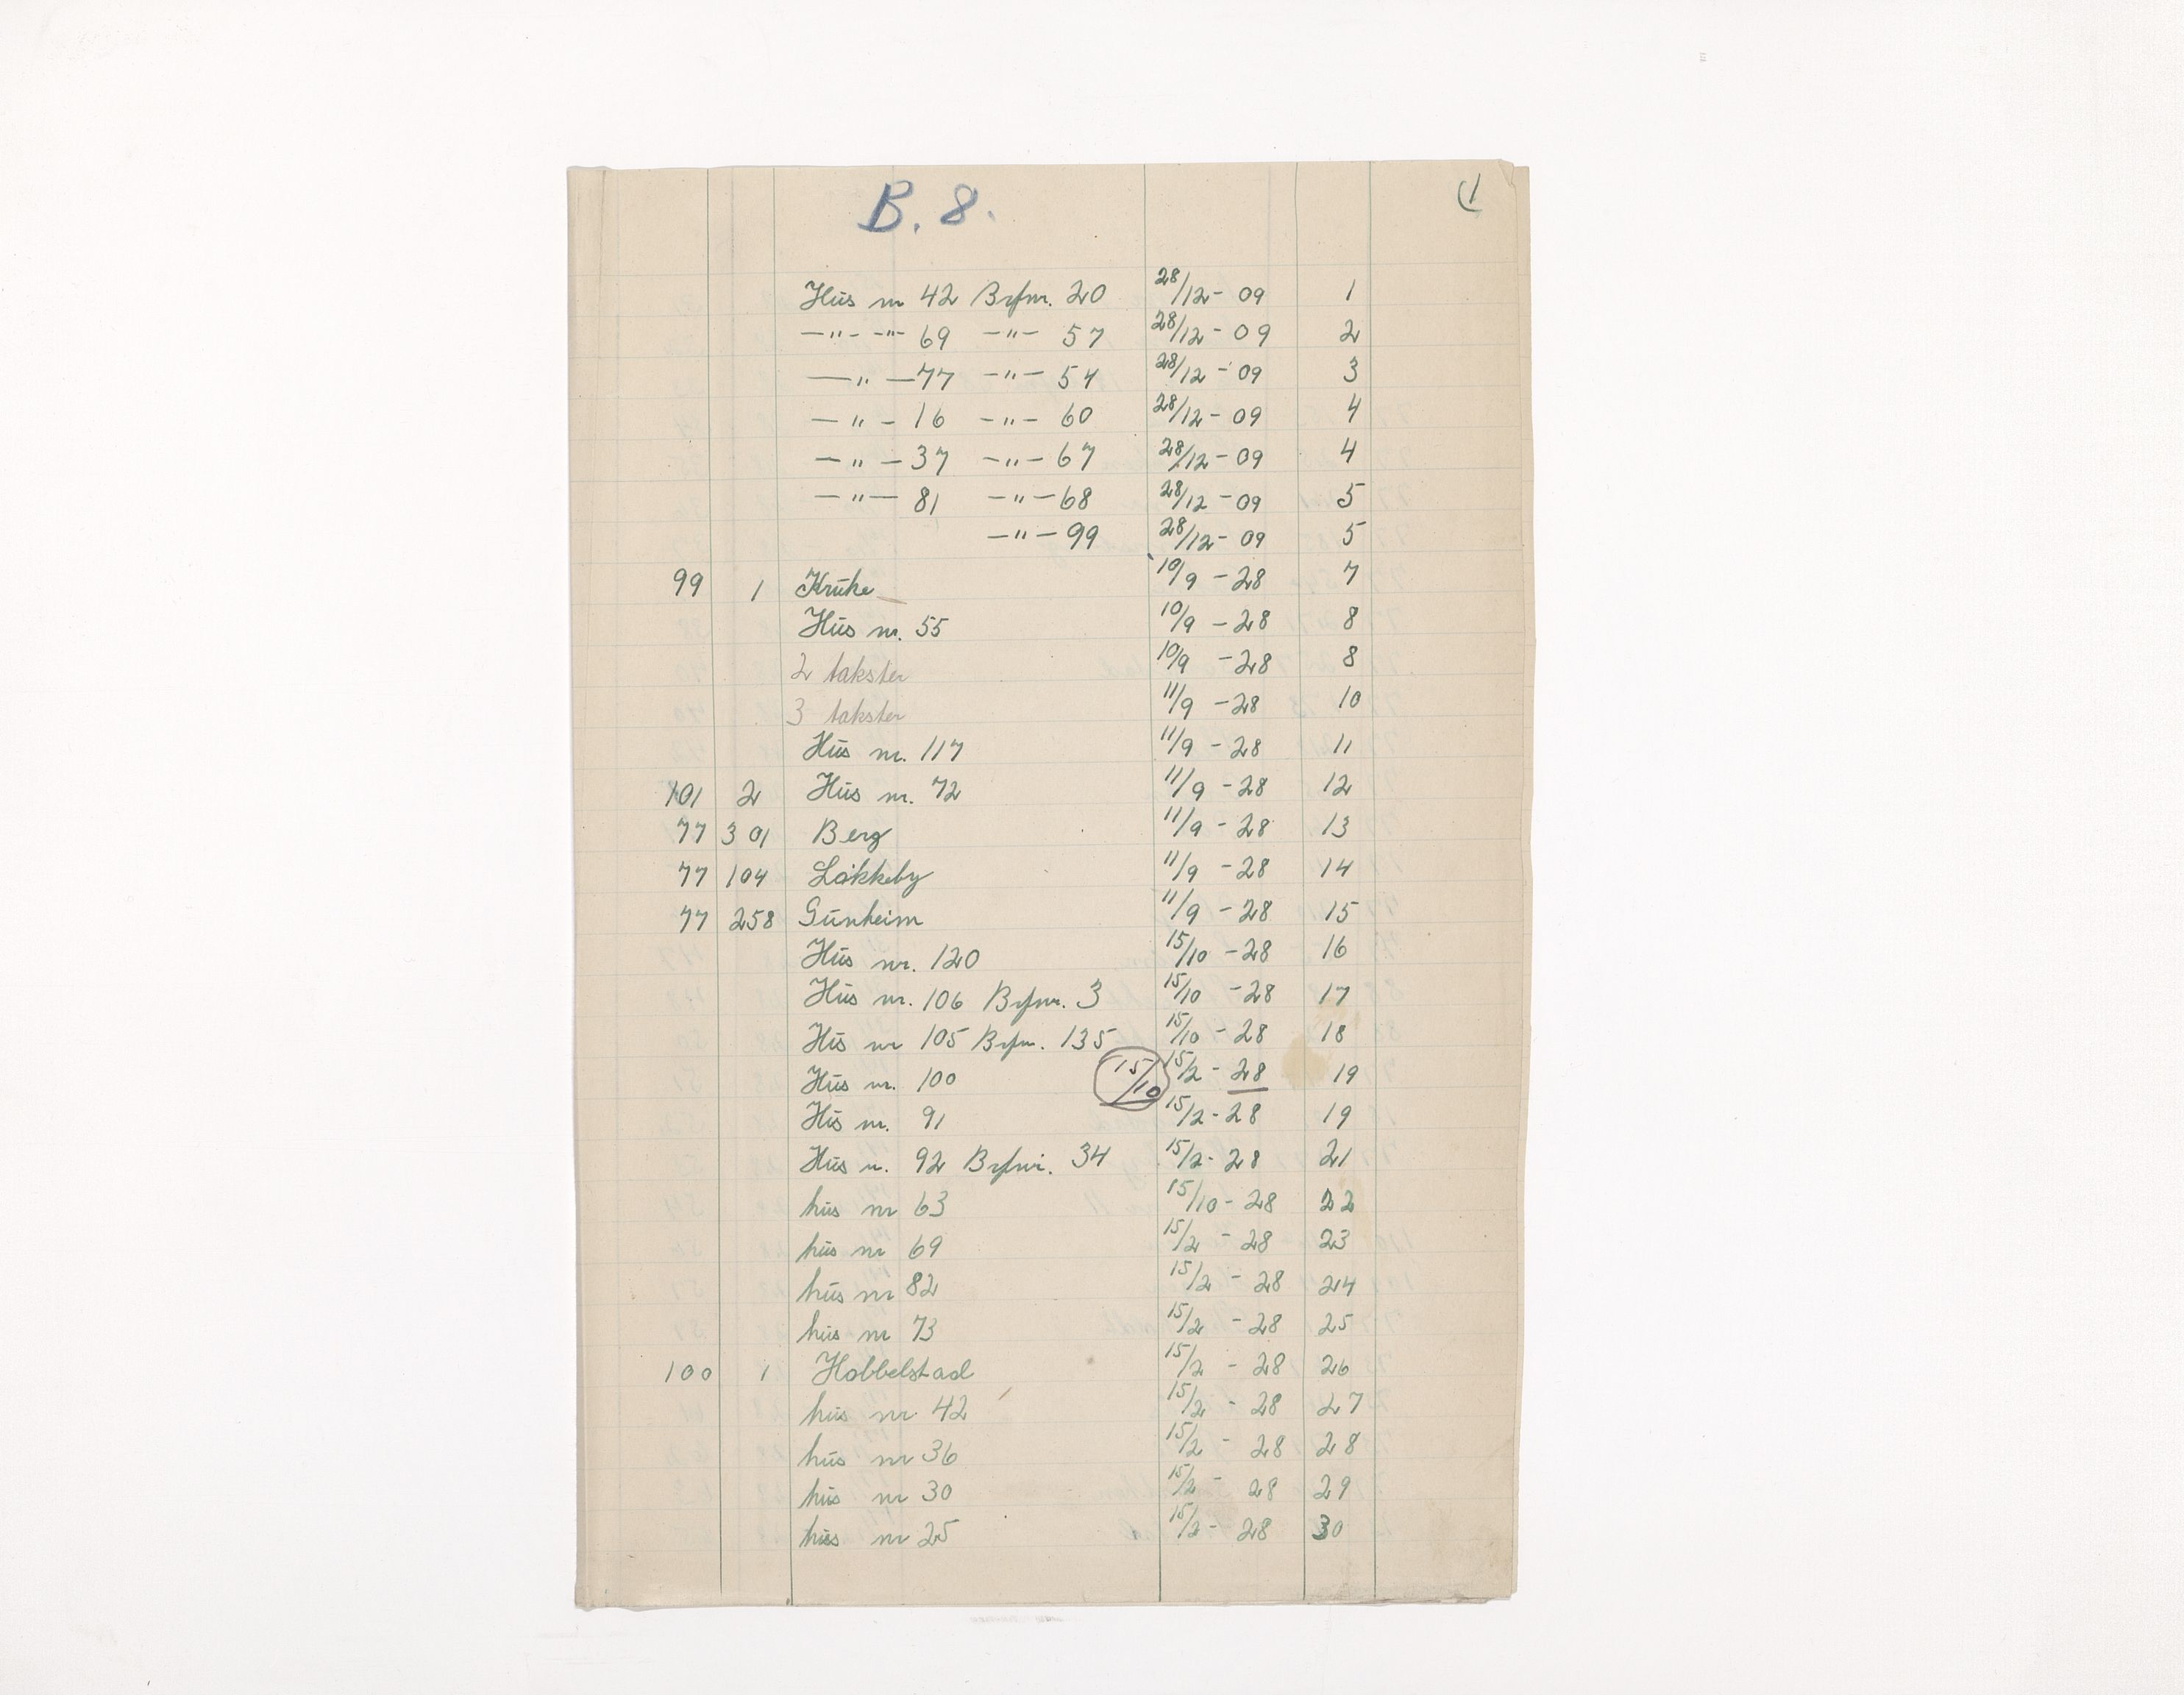 B. 8.
1
Hus nr 42 Brfnr. 20 28/12 - 09 1
—"— —"— 69 —"— 57 28/12 - 09 2
—"— 77 —"— 54 28/12 - 09 3
—"— 16 —"— 60 28/12 - 09 4
—"— 37 —"— 67 28/12 - 09 4
—"— 81 —"— 68 28/12 - 09 5
—"— 99 28/12 - 09 5
99 1 Kruke 10/9 - 28 7
Hus nr. 55 10/9 - 28 8
2 takster 10/9 - 28 8
3 takster 11/9 - 28 10
Hus nr. 117 11/9 - 28 11
101 2 Hus nr. 72 11/9 - 28 12
77 301 Berg 11/9 - 28 13
77 104 Løkkeby 11/9 - 28 14
77 258 Gunheim 11/9 - 28 15
Hus nr. 120 15/10 - 28 16
Hus nr. 106 Brfnr. 3 15/10 - 28 17
Hus nr 105 Brfnr. 135 15/10 - 28 18
Hus nr. 100 15/10 15/2 - 28 19
Hus nr. 91 15/2 - 28 19
Hus nr. 92 Brfnr. 34 15/2 - 28 21
hus nr 63 15/10 - 28 22
hus nr 69 15/2 - 28 23
hus nr 82 15/2 - 28 24
hus nr 73 15/2 - 28 25
100 1 Hobbelstad 15/2 - 28 26
hus nr 42 15/2 - 28 27
hus nr 36 15/2 - 28 28
hus nr 30 15/2 - 28 29
hus nr 25 15/2 - 28 30